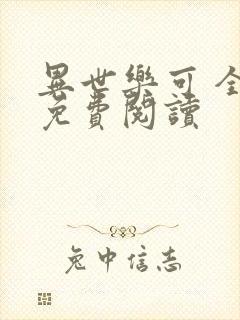 異世樂可 全
免費閱讀
兔中信志